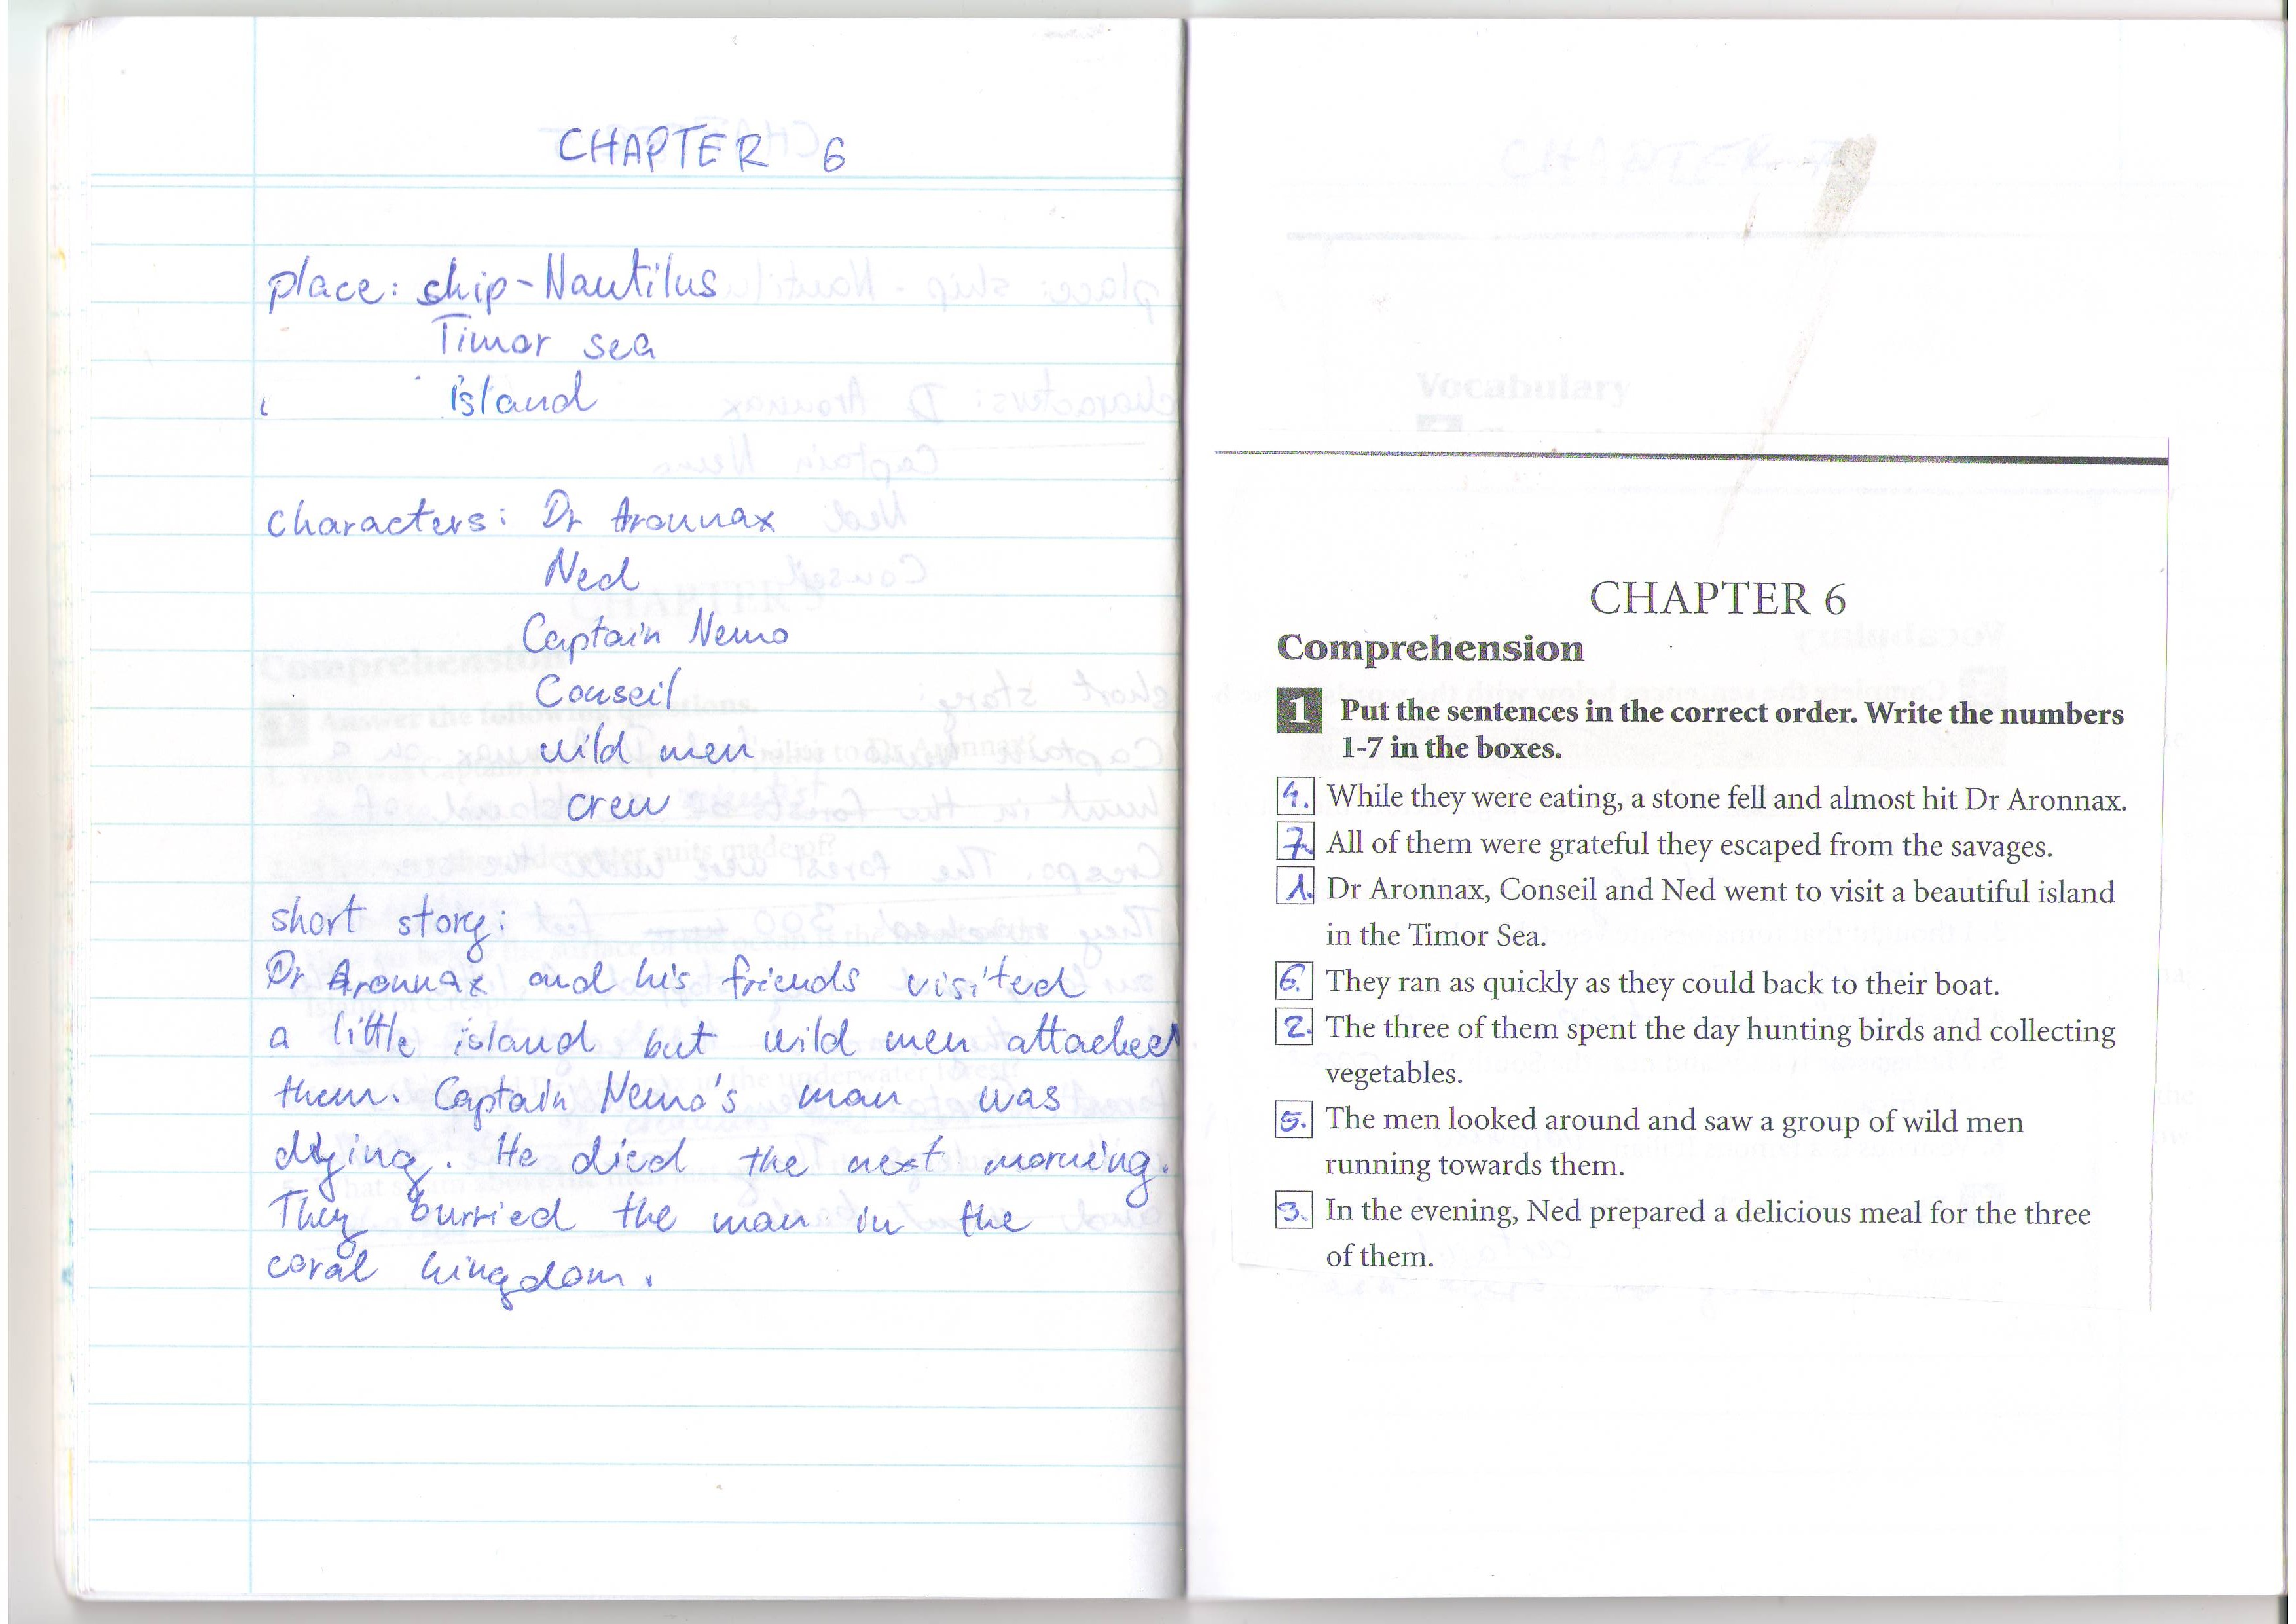 CHAPTER 6
place: ship-Nautilus
Timor sea
island
characters: Dr Aronnax
Ned
Captain Nemo
Conseil
wild men
crew
short story:
Dr Aronnax and his friends visited
a little island but wild men attacked
them. Captain Nemo's man was
dying. He died the next morning.
They burried the man in the
coral kingdom.
CHAPTER 6
Comprehension
1 Put the sentences in the correct order. Write the numbers
1-7 in the boxes.
4. While they were eating, a stone fell and almost hit Dr Aronnax.
7. All of them were grateful they escaped from the savages.
1. Dr Aronnax, Conseil and Ned went to visit a beautiful island
in the Timor Sea.
6. They ran as quickly as they could back to their boat.
2. The three of them spent the day hunting birds and collecting
vegetables.
5. The men looked around and saw a group of wild men
running towards them.
3. In the evening, Ned prepared a delicious meal for the three
of them.